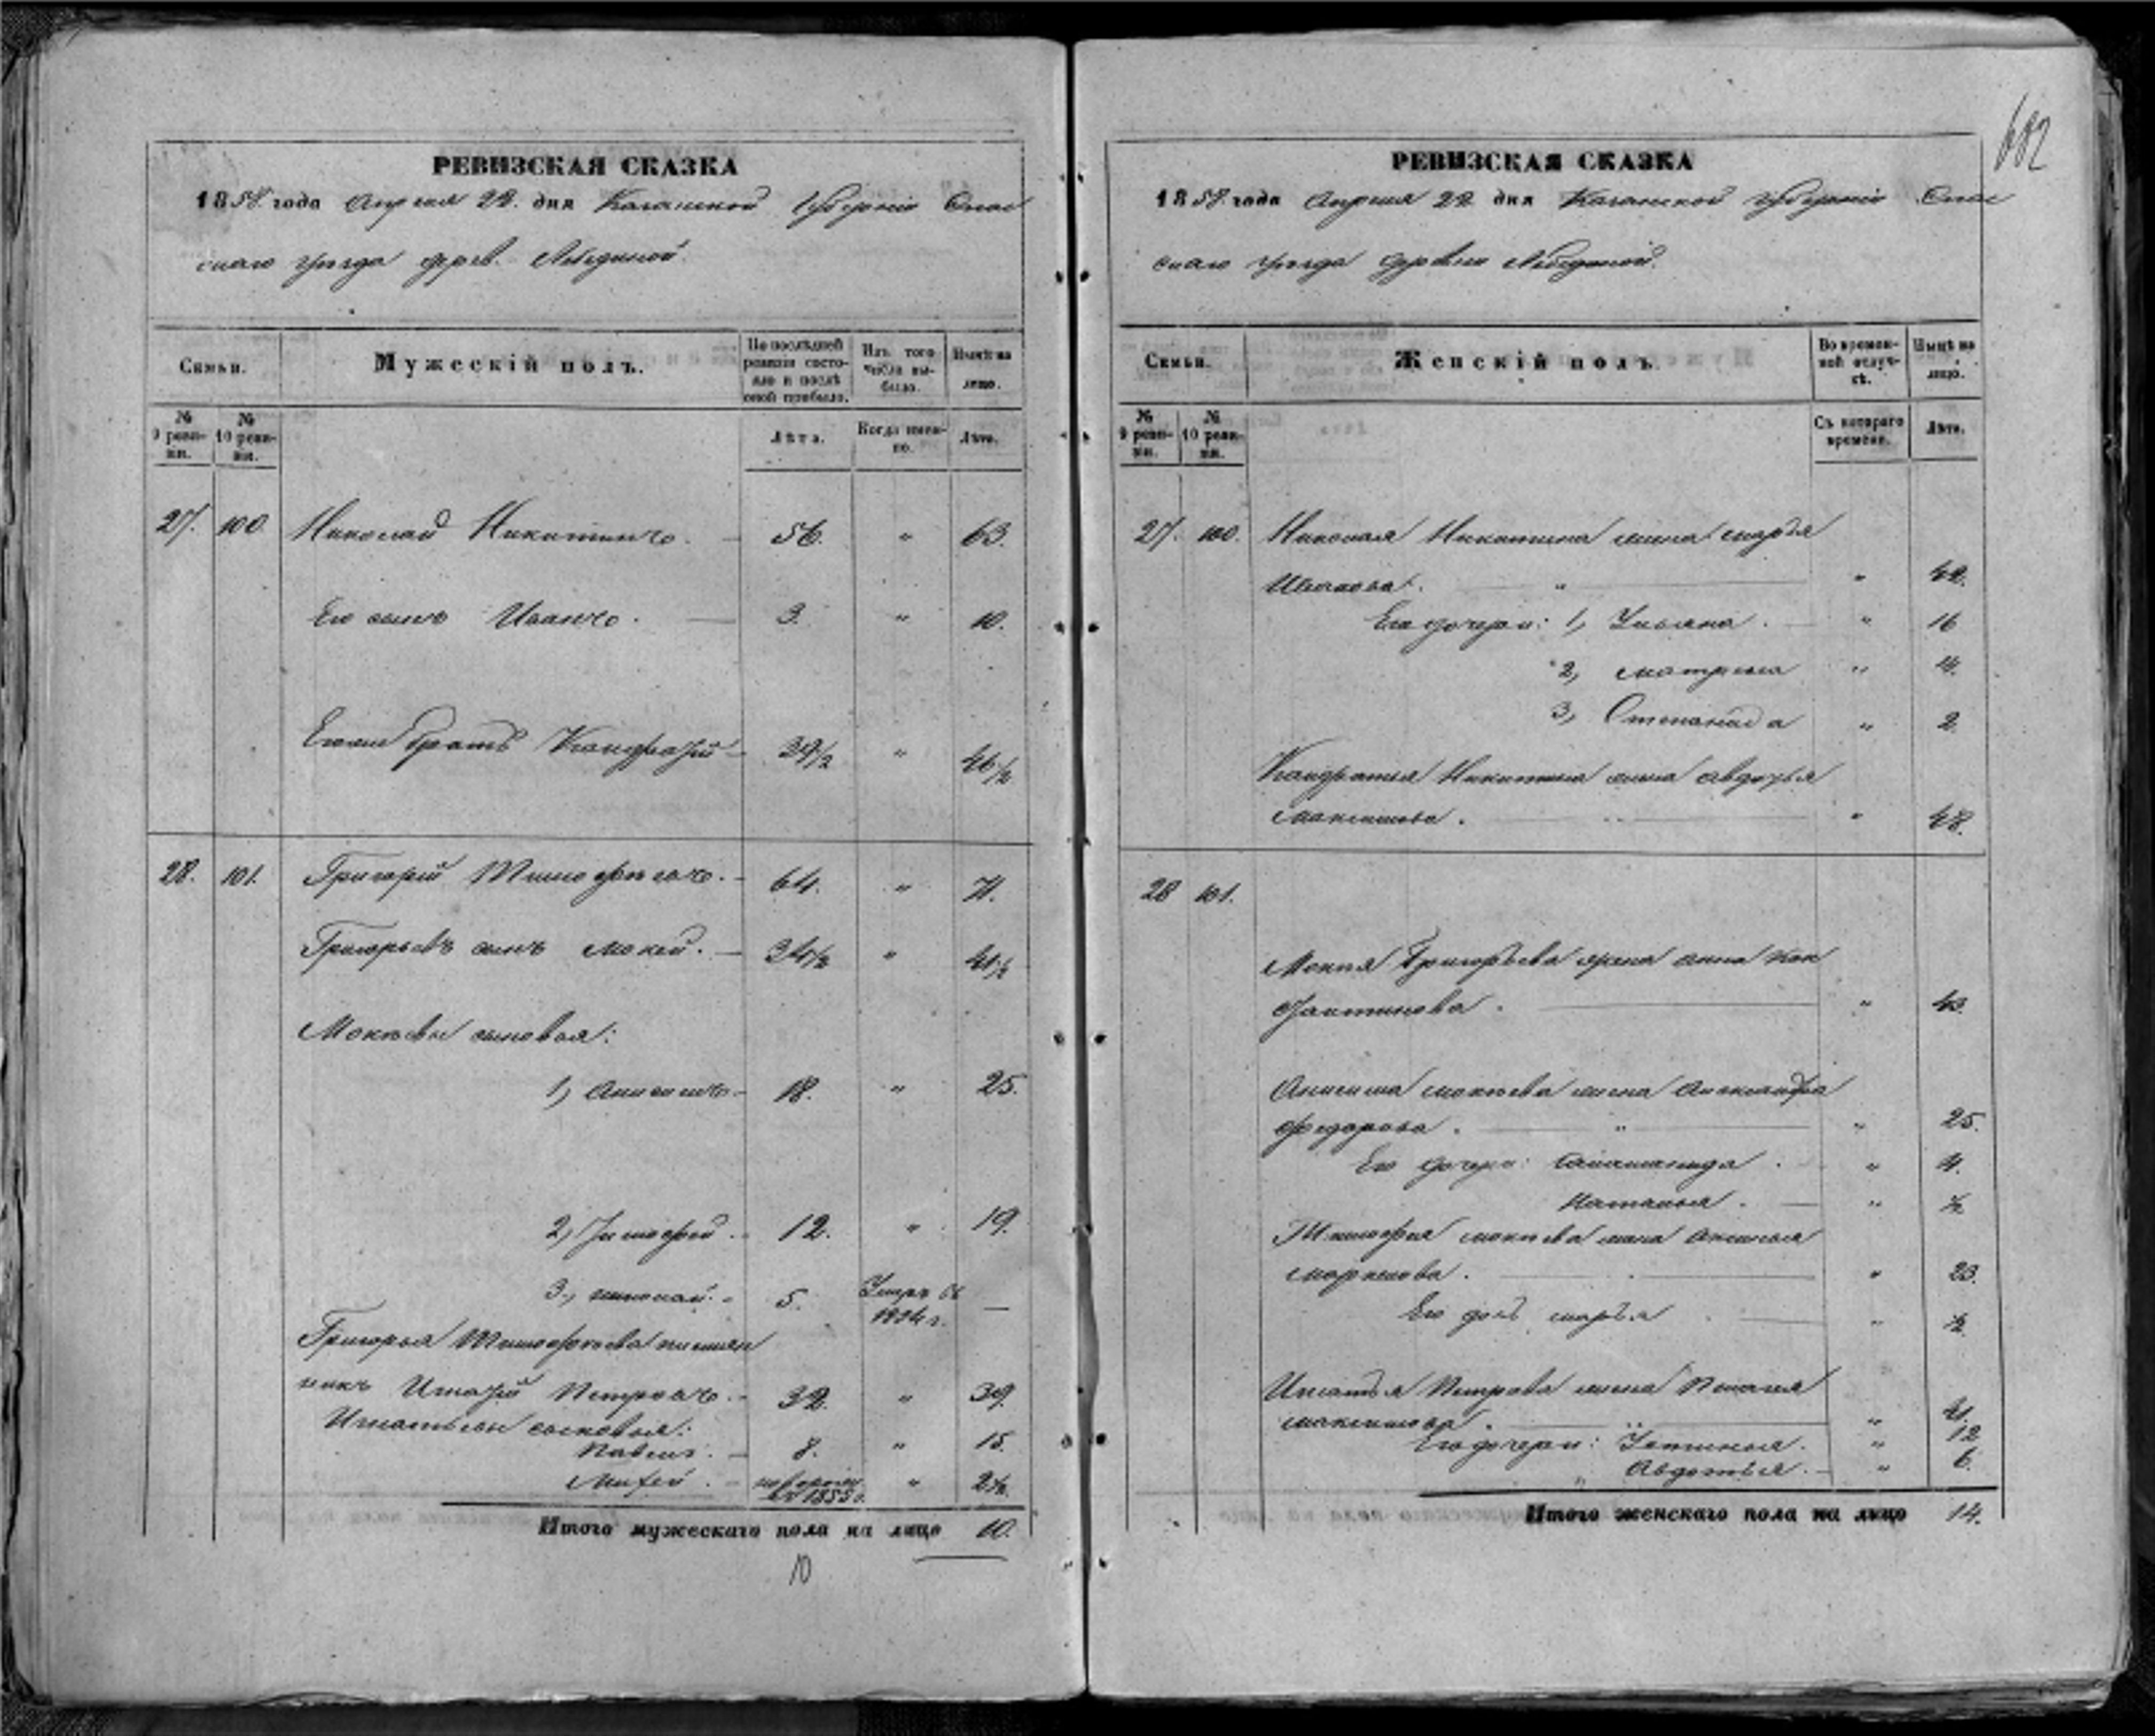 РЕВИЗСКАЯ СКАЗКА
1858 года Апреля 22 дня Казанской Губернии Спас
скаго уезда дерев. Лебединой.
Семьи.
Мужескій полъ.
По послѣдней ревизіи состояло и послѣ оной прибыло.
Изъ того числа выбыло.
Нынѣ на лицо.
№ 9 ревизіи.
№ 10 ревизіи.
Лѣта.
Когда именно.
Лѣта.
27. 100. Николай Никитинъ. — 56. " 63.
Его сынъ Иванъ. — 3. " 10.
братъ Кондратій — 39½ " 46½
28. 101. Григорій Тимофѣевъ. — 64. " 71.
Григорьевъ сынъ Мокей. — 34½ " 41½
Мокѣевы сыновья:
1, Анисимъ — 18. " 25.
2, Тимофей — 12. " 19.
3, Николай — 5. Умеръ въ —
Григорья Тимофѣева племян
никъ Игнатій Петровъ. — 32. " 39.
Игнатьевы сыновья:
Павелъ. — 8. " 15.
Михей. — въ 1855 г. " 2½.
Итого мужескаго пола на лицо 10.
10
682
РЕВИЗСКАЯ СКАЗКА
1858 года Апреля 22 дня Казанской губерніи Спас
скаго уезда деревни Лебединой.
Семьи.
Женскій полъ.
Во временной отлучкѣ.
Нынѣ на лицо.
№ 9 ревизіи.
№ 10 ревизіи.
Съ котораго времени.
Лѣта.
27. 100. Николая Никитина жена марья
Иванова. — " — " 42.
Его дочери: 1, Ульяна. — " 16
2, матрена " 4.
3, " 2
Кондратья Никитина жена авдотья
Максимова. — " 48.
28 101.
Мокея Григорьева жена анна Кон
стантинова. — " 43.
Анисима мокѣева жена Александра
федорова. — " — " 25.
Его дочери: " 4.
Наталья. — " ½
Тимофея мокѣева жена Аксинья
маркелова. — " 23.
Его дочь марья — " ½
Игнатья Петрова жена Пелагея
максимова. — " — "
Его дочери: Устинья. " 12
" Авдотья. — " 6.
Итого женскаго пола на лицо 14.